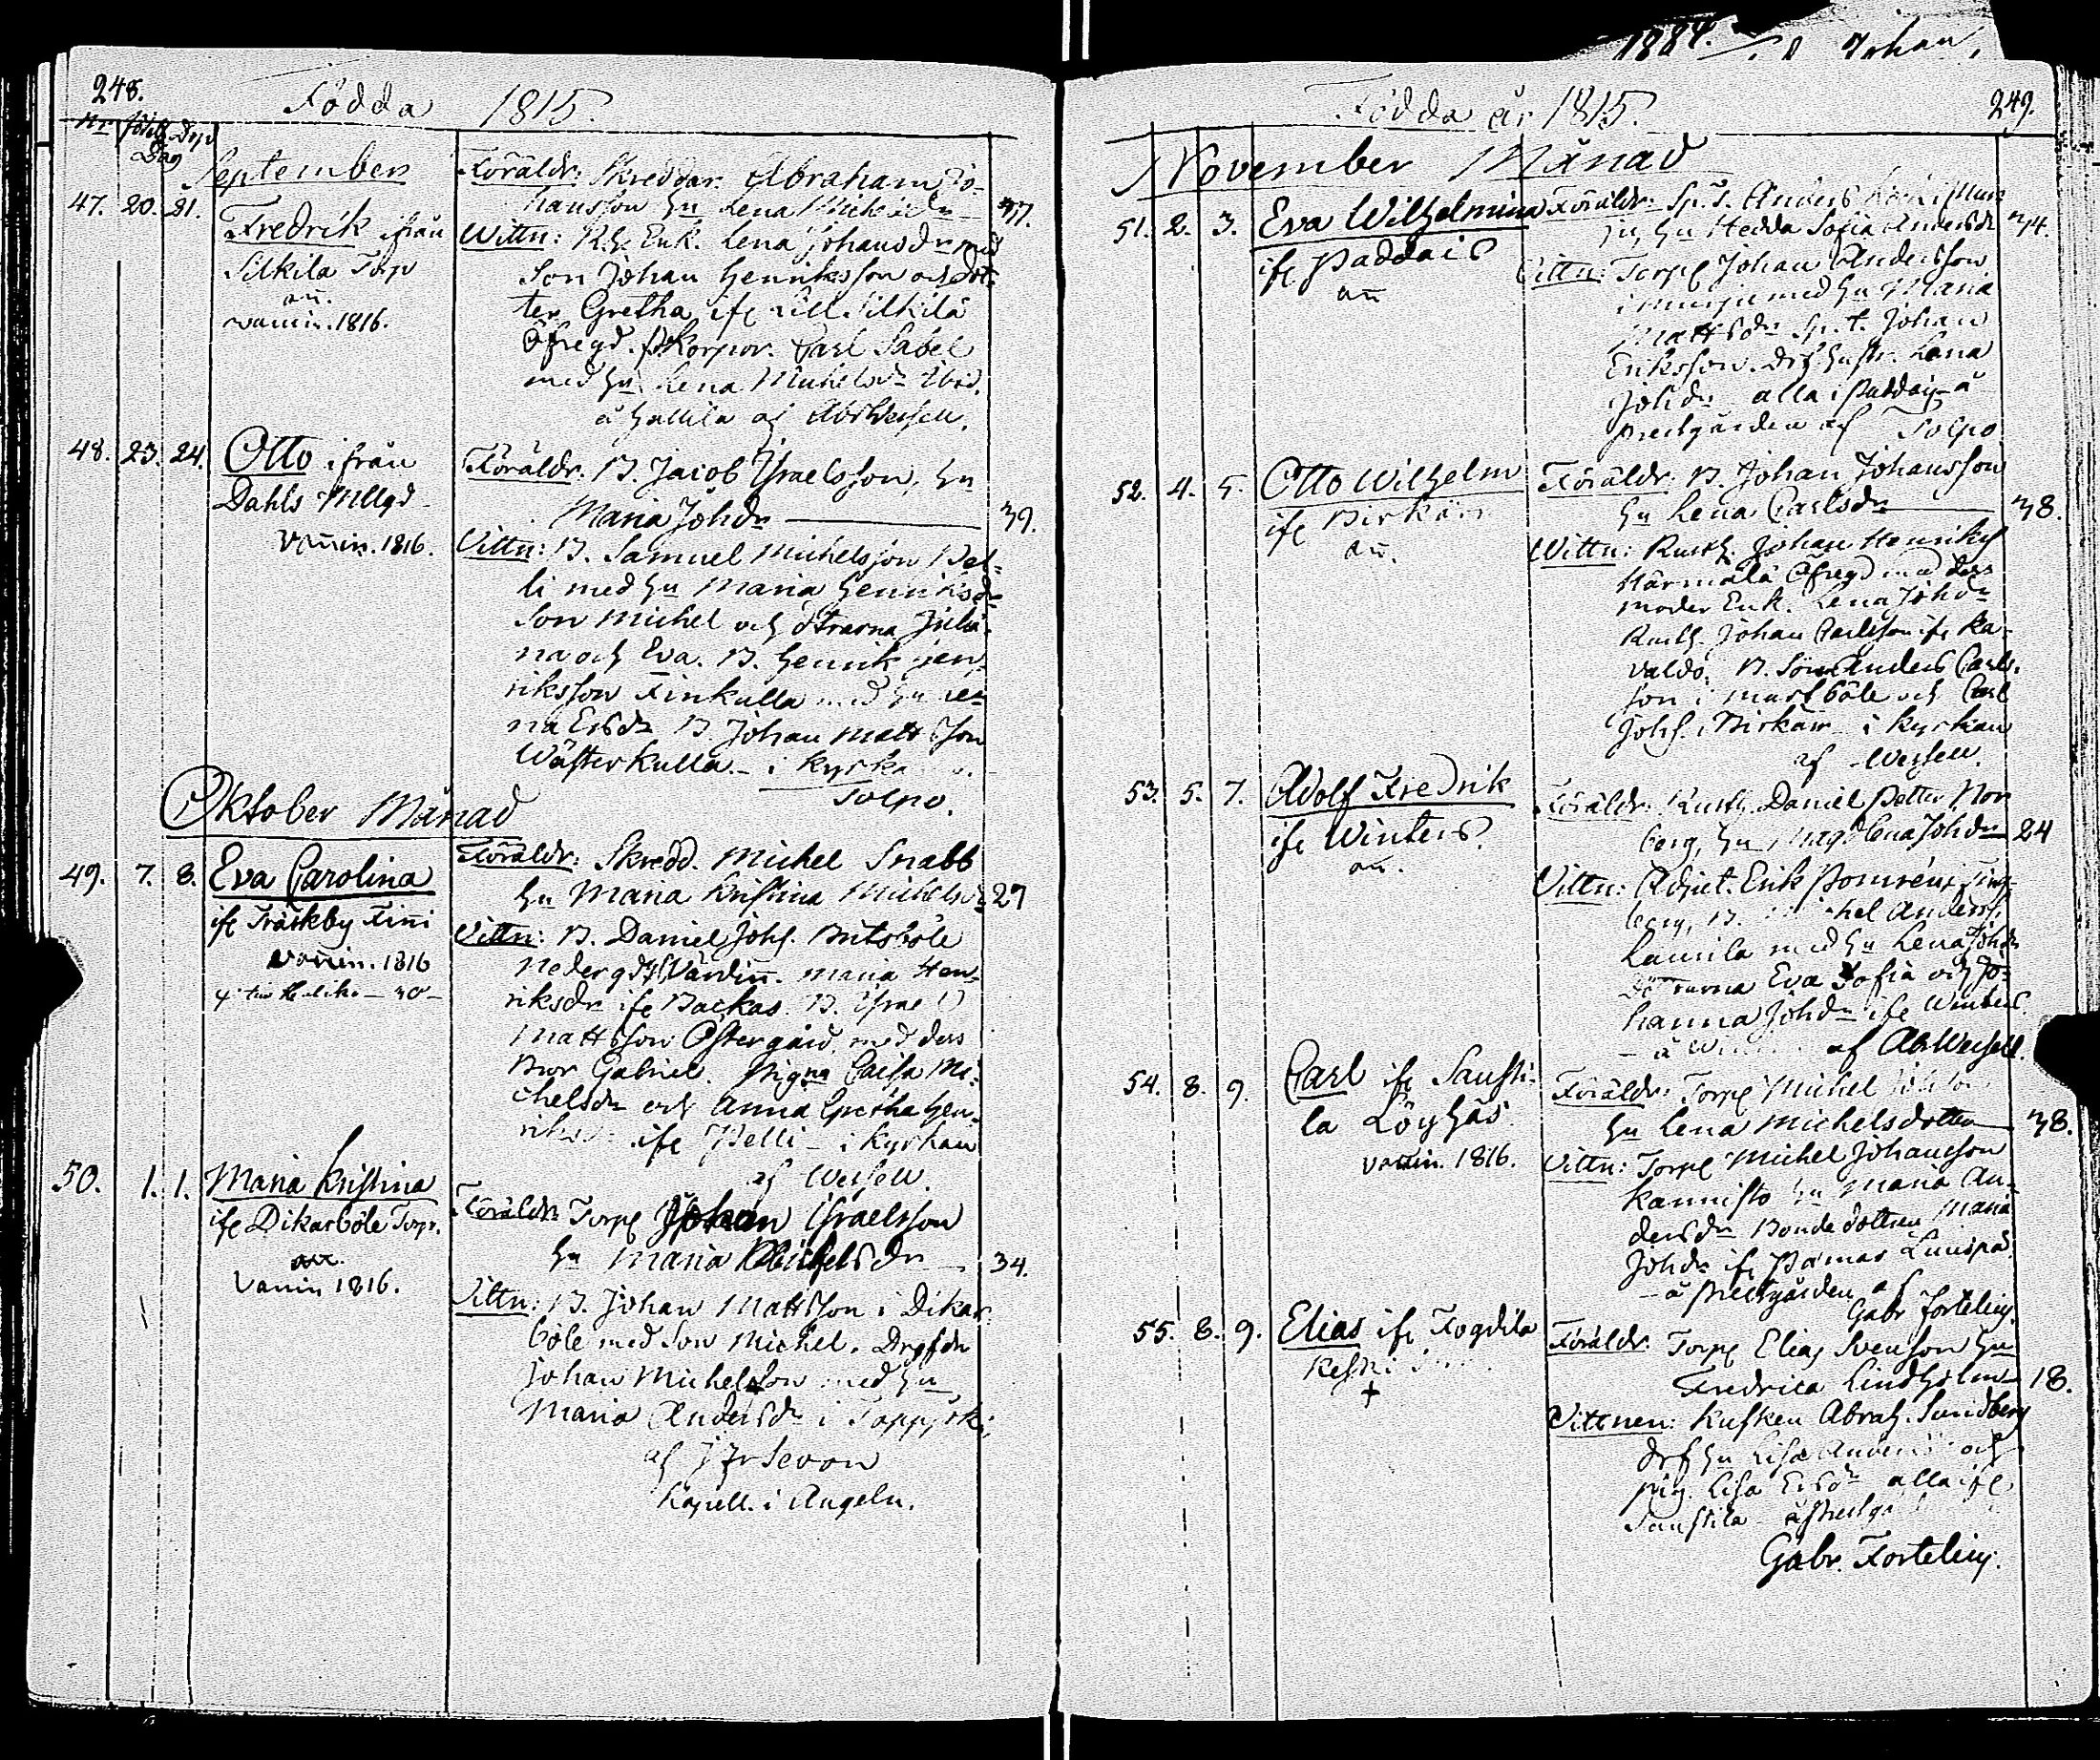 248.
Födda 1815.
Nr födels Döpd
Dag
September
47. 20. 21.
Fredrik ifrån
Silkila Torp
vaccin. 1816.
Föräldr: Skreddar. Abraham Jo-
hansson hu Lena Michelsdr 37.
Wittn: Rh. Enk. Lena Johansdr med
Son Johan Henriksson och dot-
ter Gretha ifr Lill Silkilä
Öfregd. Korpor. Carl Sabel
med hu Lena Michelsdr ibid.
48. 23. 24. Otto ifrån
Dahls Mllgd
vaccin. 1816.
Föräldr. B. Jacob Israelsson, hu
Maria Johdr 39.
Vittn: B. Samuel Michelsson Pel-
li med hu Maria Henriksdr
Son Michel och dttrarna Julia-
na och Eva. B. Henrik Hen-
riksson Finkulla med hu Le-
na Ersdr B. Johan Mattsson
Wästerkulla - i kyrka
Tolpo.
Oktober Månad
49. 7. 8. Eva Carolina
ifr Träskby Finni
vaccin. 1816
Föräldr: Skredd. Michel Snabb
hu Maria Kristina Michelsdr 27
Vittn: B. Daniel Johs. Bitsböle
Nedergd Värdin. Maria Hen-
riksdr ifr Backas. B. Israel
Mattsson Östergård med dess
Bror Gabriel. Pigna Caisa Mi-
chelsdr och Anna Gretha Hen-
riksdr ifr Pelli - i kyrkan
af Wessell.
50. 1. 1. Maria Kristina
ifr Dikarböle Torp.
Vaccin 1816.
Föräldr: Torpr Johan Israelsson
hu Maria Michelsdr 34.
Vittn: B. Johan Mattsson i Dikar-
böle med Son Michel. Drgfdn
Johan Michelsson med hu
Maria Andersdr i
af J Fr Sevon
Kapell. i Angeln.
1884. Johan,
Födda år 1815. 249.
November Månad
51. 2. 3. Eva Wilhelmina
ifr Paddais
Föräldr: Sp.T. Anders
hu Hedda Sofia Andersdr 34.
Vittn: Torpr Johan Andersson
med hu Maria
Mattsdr Sp.t. Johan
Eriksson. Dess hustr. Lena
Johdr alla i Paddais å
prestgården af Tolpo
52. 4. 5. Otto Wilhelm
ifr Birkärr
Föräldr: B. Johan Johansson
hu Lena Carlsdr 38.
Wittn: Rusth. Johan Henriks
Härmälä Öfregd med dess
moder Enk. Lena Johdr
Rusth. Johan Carlsson ifr Ka-
valdö. B. Son Anders Carls-
son i Mustböle och Carl
Johs. Birkärr i kyrkan
af Wessell.
53. 5. 7. Adolf Fredrik
ifr Winters.
Föräldr: Rusth. Daniel Petter Nor
berg, hu Magdlena Johdr 24
Vittn: Adjnct. Erik
berg, B. Michel Anderss.
Laurila med hu Lena Johdr
Döttrarna Eva Sofia och Jo-
hanna Johdr ifr Winters.
af Ab. Wessell.
54. 8. 9. Carl ifr Sausti-
la Löyhäs
vaccin. 1816.
Föräldr: Torpr Michel
hu Lena Michelsdotter 38.
Vittn: Torpr Michel Johansson
Kannisto hu Maria An-
dersdr Bonde dottren Maria
Johdr ifr Pamar
- å prestgården af
Gabr Fortelius.
55. 8. 9. Elias ifr Fogdila
Föräldr: Torpr Elias Svenson hu
Fredrica Lindholm 18.
Vittnen: Kusken Abrah. Sundberg
drf hu Lisa Andersd och
pig. Lisa Ersdr alla ifr
Saustila
Gabr. Fortelius.